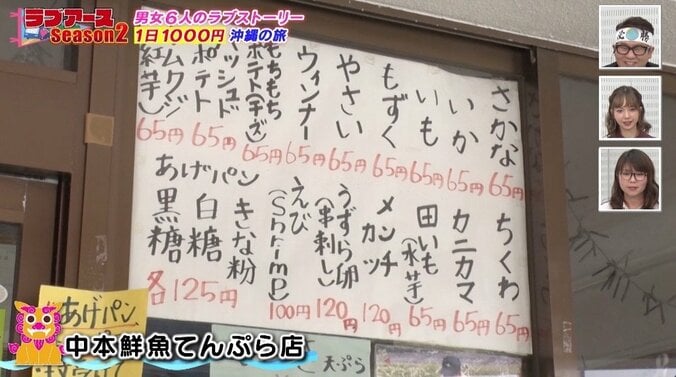 ラブアース
season2
男女6人のラブストーリー
1日1000円 沖縄の旅
必勝
さかな 65円
いか 65円
いも 65円
もずく 65円
やさい 65円
ウィンナー 65円
もちもち
ポテト(チーズ) 65円
ハッシュド
ポテト 65円
ムクジ
(紅芋) 65円
ちくわ 65円
カニカマ 65円
田いも
(水芋) 65円
メンチ
カツ 120円
うずら卵
(串刺し) 120円
えび
(Shrimp) 100円
あげパン
きな粉
白糖
黒糖
各125円
あげパン
天ぷら
中本鮮魚てんぷら店